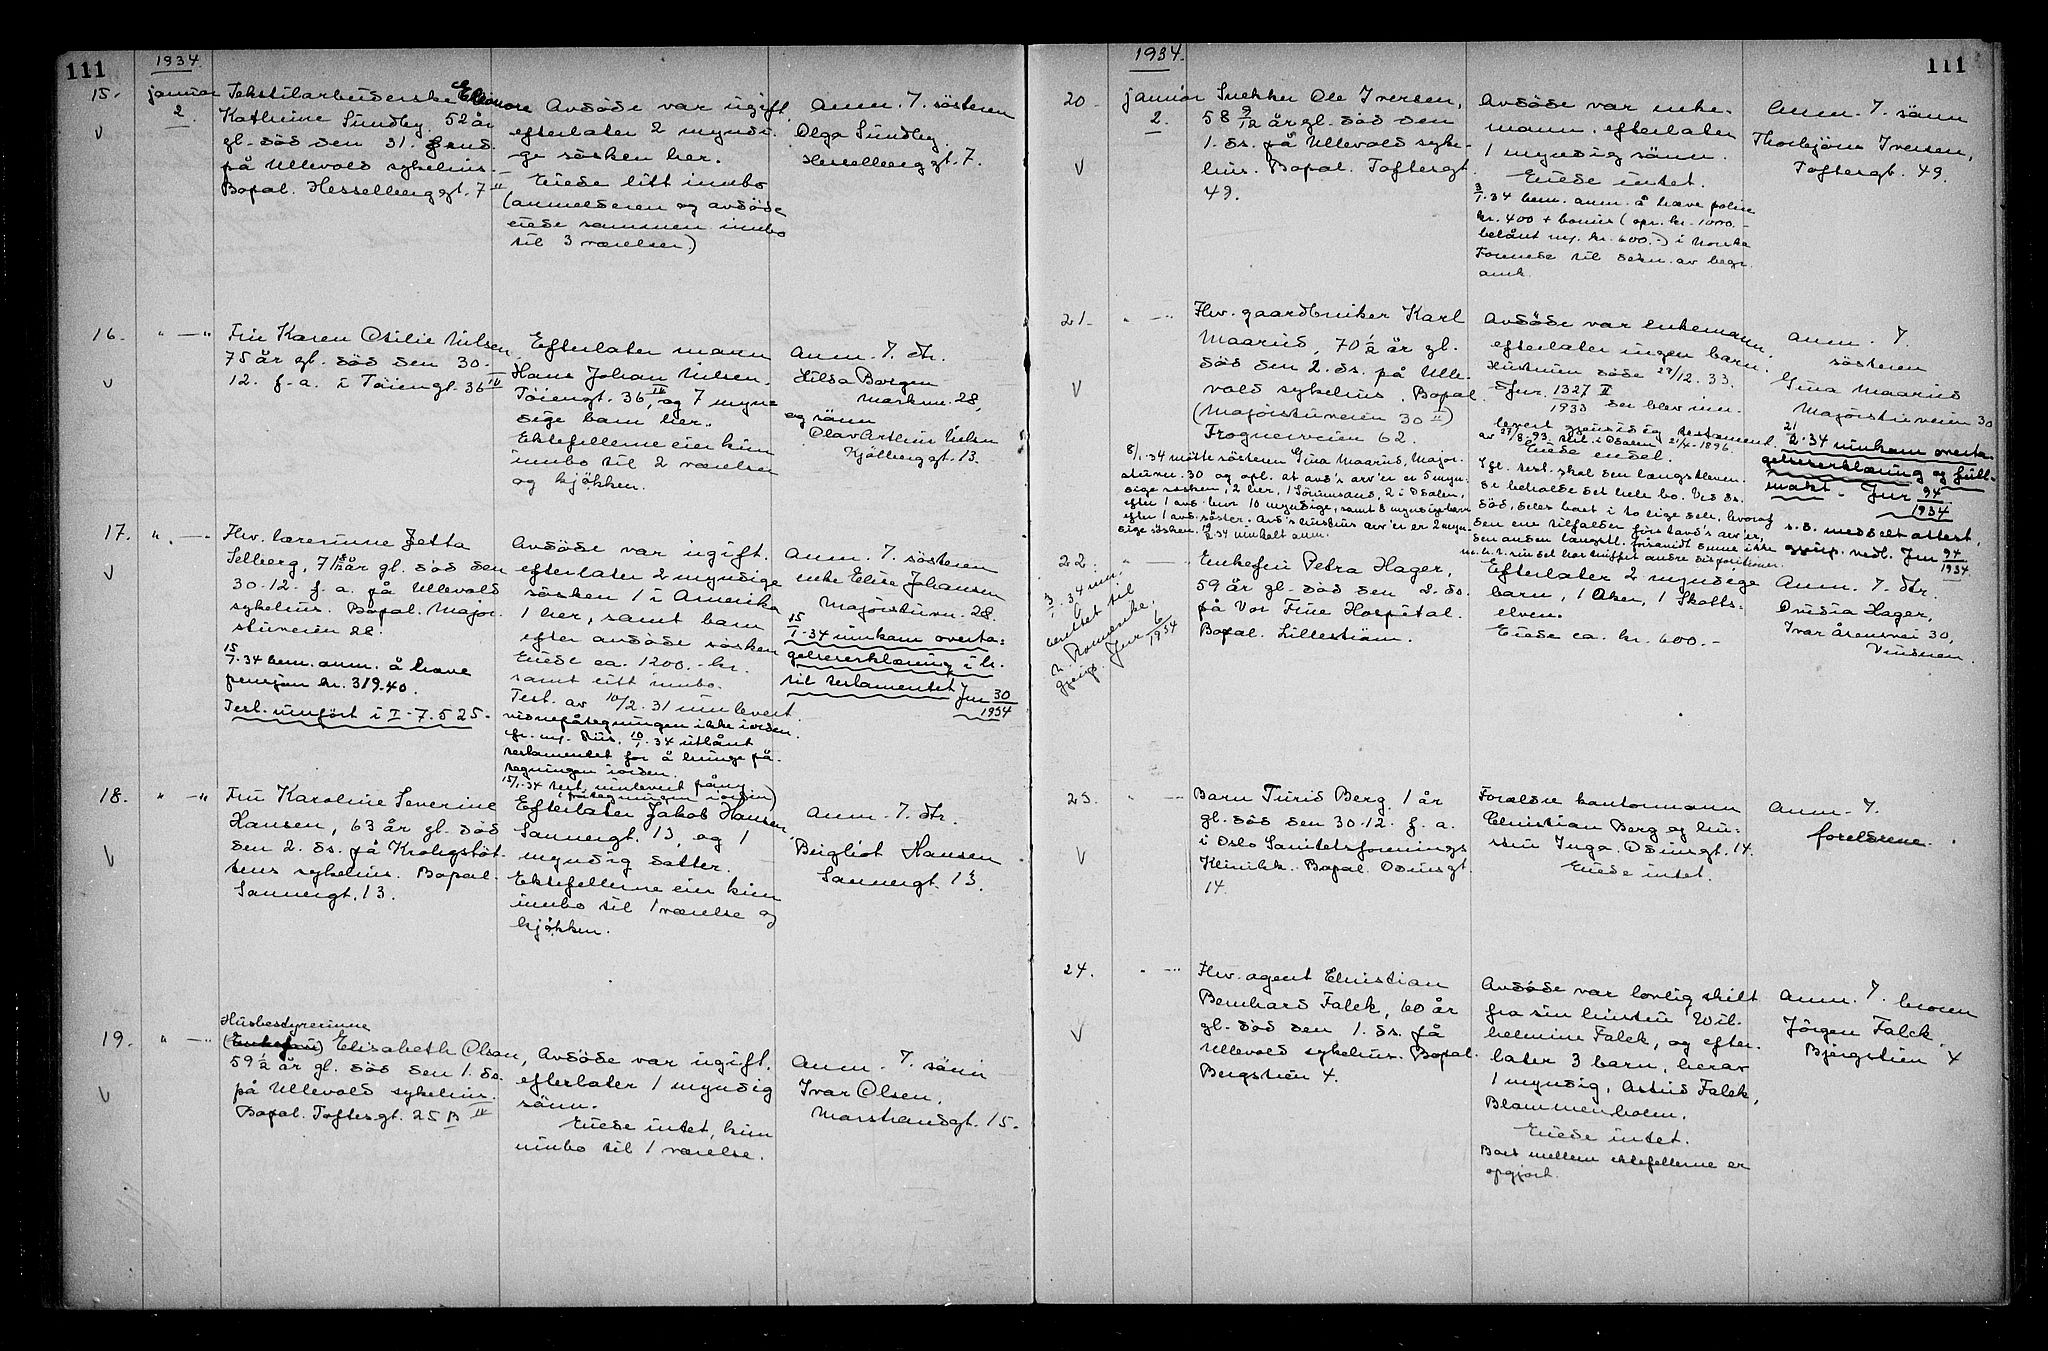 111
1934
15.
januar
2
Tekstilarbeiderske Eleonore
Kathrine Sundby. 52 år
gl. död den 31.
på Ullevold sykehus.
Bopæl. Hesselberggt. 7 II
Avdöde var ugift,
efterlater 2 myndi-
ge sösken her.
Eiede litt innbo
(anmelderen og avdöde
eiede sammen innbo
til 3 værelser)
Anm. 7. sösteren
Olga Sundby.
Hesselberggt. 7.
16.
" — "
Fru Karen Otilie Nilsen,
75 år gl. död den 30.
12. f.a. i Töiengt. 36 IV
Efterlater mann
Hans Johan Nilsen.
Töiengt. 36 IV, og 7 myn-
dige barn her.
Ektefellene eier kun
innbo til 2 værelser
og kjökken.
Anm. 7. dtr.
Hilda Borgen
Markvn. 28,
og sönn
Olav Arthur Nilsen
Kjölberggt. 13.
17.
" — "
Fhv. lærerinne Jetta
Selberg, 71 år gl. död den
30.12. f.a. på Ullevold
sykehus. Bopæl. Major-
stuveien 28.
15/1.34 bem. anm. å hæve
pensjon kr. 319.40.
Test. innfört i I-7.525.
Avdöde var ugift.
efterlater 2 myndige
sösken 1 i Amerika
1 her, samt barn
efter avdöde sösken
Eiede ca. 1200.- kr.
samt litt innbo.
Test. av 10/2.31 innlevert.
vidnepåtegningen ikke i orden.
10/1.34 utlånt
testamentet for å bringe på-
tegningen i orden.
15/1.34 test. innlevert påny
(påtegningen i orden)
Anm. 7. sösteren
enke Elise Johansen
Majorstuvn. 28.
15/1.34 innkom overta-
gelseserklæring i h.
til testamentet Jnr 30/1934
18.
" — "
Fru Karoline Severine
Hansen, 63 år gl. död
den 2. ds. på Krohgstöt-
tens sykehus. Bopæl.
Sannergt. 13.
Efterlater Jakob Hansen,
Sannergt. 13, og 1
myndig datter.
Ektefellerne eier kun
innbo til 1 værelse og
kjökken.
Anm. 7. dtr.
Bergliot Hansen
Sannergt. 13.
19.
" — "
Husbestyrerinne
(Enkefru) Elisabeth Olsen,
59 1/2 år gl. död den 1. ds.
på Ullevold sykehus.
Bopæl. Toftesgt. 25 A IV
Avdöde var ugift.
efterlater 1 myndig
sönn.
Eiede intet, kun
innbo til 1 værelse.
Anm. 7. sönn
Ivar Olsen,
Marstrandgt. 15.
1934.
111
20
januar
2.
Snekker Ole Iversen,
58 9/12 år gl. död den
1. ds. på Ullevold syke-
hus. Bopæl. Toftesgt.
49.
Avdöde var enke-
mann. efterlater
1 myndig sönn.
Eiede intet.
3/1.34 bem. anm. å hæve polise
kr. 400 + bonus (opr. kr. 1000.-
belånt m. kr. 600.-) i Norske
Forenede til dekn. av begr.
omk.
Anm. 7. sönn
Thorbjörn Iversen,
Toftesgt. 49.
21.
" — "
Fhv. gaardbruker Karl
Maarud, 70 1/2 år gl.
död den 2. ds. på Ulle-
vold sykehus. Bopæl.
(Majorstuveien 30 II)
Frognerveien 62.
8/1.34 mötte sösteren Gina Maarud, Major-
stuvn. 30 og opl. at avd's arv'er er 5 myn-
dige sösken, 2 her, 1 Sörumsand, 2 i Odalen,
efter 1 avd. bror 10 myndige, samt 8 myndige barn
efter 1 avd. söster. Avd's hustrus arv'er er 2 myn-
dige sösken. 19/2.34 innkalt anm.
Avdöde var enkemann,
efterlater ingen barn.
Hustruen döde 27/12.33.
Jnr. 1327 II/1933 der blev inn-
levert gjensidig testament
av 27/8.93 tinl. i Odalen 21/4-1896.
Eiede endel.
Ifl. test. skal den længstleven-
de beholde det hele bo. Ved ds.
död, deles boet i to like dele, hvorav
den ene tilfalder förstavd's arv'er,
den anden længstl. forsåvidt denne ikke
m. h. t. sin del har truffet andre disposisjoner.
Anm. 7.
sösteren
Gina Maarud
Majorstuveien 30
21/2.34 innkom overta-
gelseserklæring og full-
makt. Jnr 94/1934
s.d. meddelt attest,
gjenp. vedl. Jnr 94/1934.
22.
" — "
3/1.34 inn-
berettet til
n. Romerike.
gjenp. Jnr 6/1934
Enkefru Petra Hager,
59 år gl. död den 2. ds.
på Vor Frue Hospital.
Bopæl. Lilleström.
Efterlater 2 myndige
barn, 1 Aker, 1 Skotts-
elven.
Eiede ca. kr. 600.-
Anm. 7. dtr.
Ovidia Hager,
Ivar Åsensvei 30,
Vinderen.
23.
" — "
Barn Turid Berg. 1 år
gl. död den 30.12. f.a.
i Oslo Sanitetsforenings
Klinikk. Bopæl. Odinsgt.
14.
Forældre kontormann
Christian Berg og hu-
stru Inga. Odinsgt. 14.
Eiede intet.
Anm. 7.
foreldrene.
24.
" — "
Fhv. agent Christian
Bernhard Falck, 60 år
gl. död den 1. ds. på
Ullevold sykehus. Bopæl.
Bergstien 4.
Avdöde var lovlig skilt
fra sin hustru Wil-
helmine Falck, og efter-
later 3 barn, herav
1 myndig, Astrid Falck,
Blommenholm.
Eiede intet.
Boet mellem ektefellerne er
opgjort.
Anm. 7. broren
Jörgen Falck.
Bjergstien 4